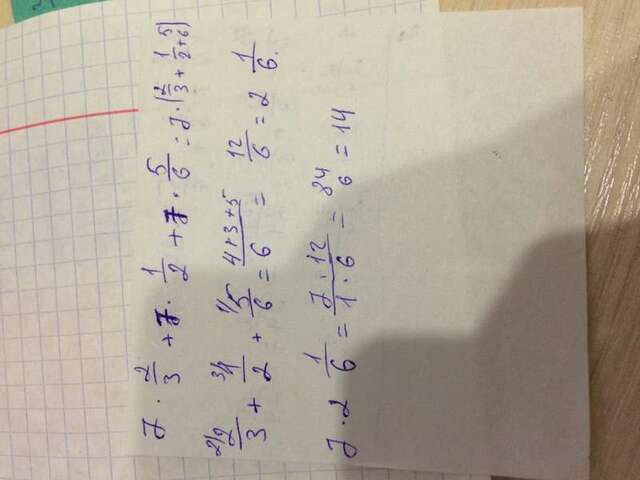 7 · 2/3 + 7 · 1/2 + 7 · 5/6 = 7 · (2/3 + 1/2 + 5/6)
2/ 2/3 + 3/ 1/2 + 1/ 5/6 = 4+3+5/6 = 12/6 = 2 1/6.
7 · 2 1/6 = 7 · 12/1 · 6 = 84/6 = 14